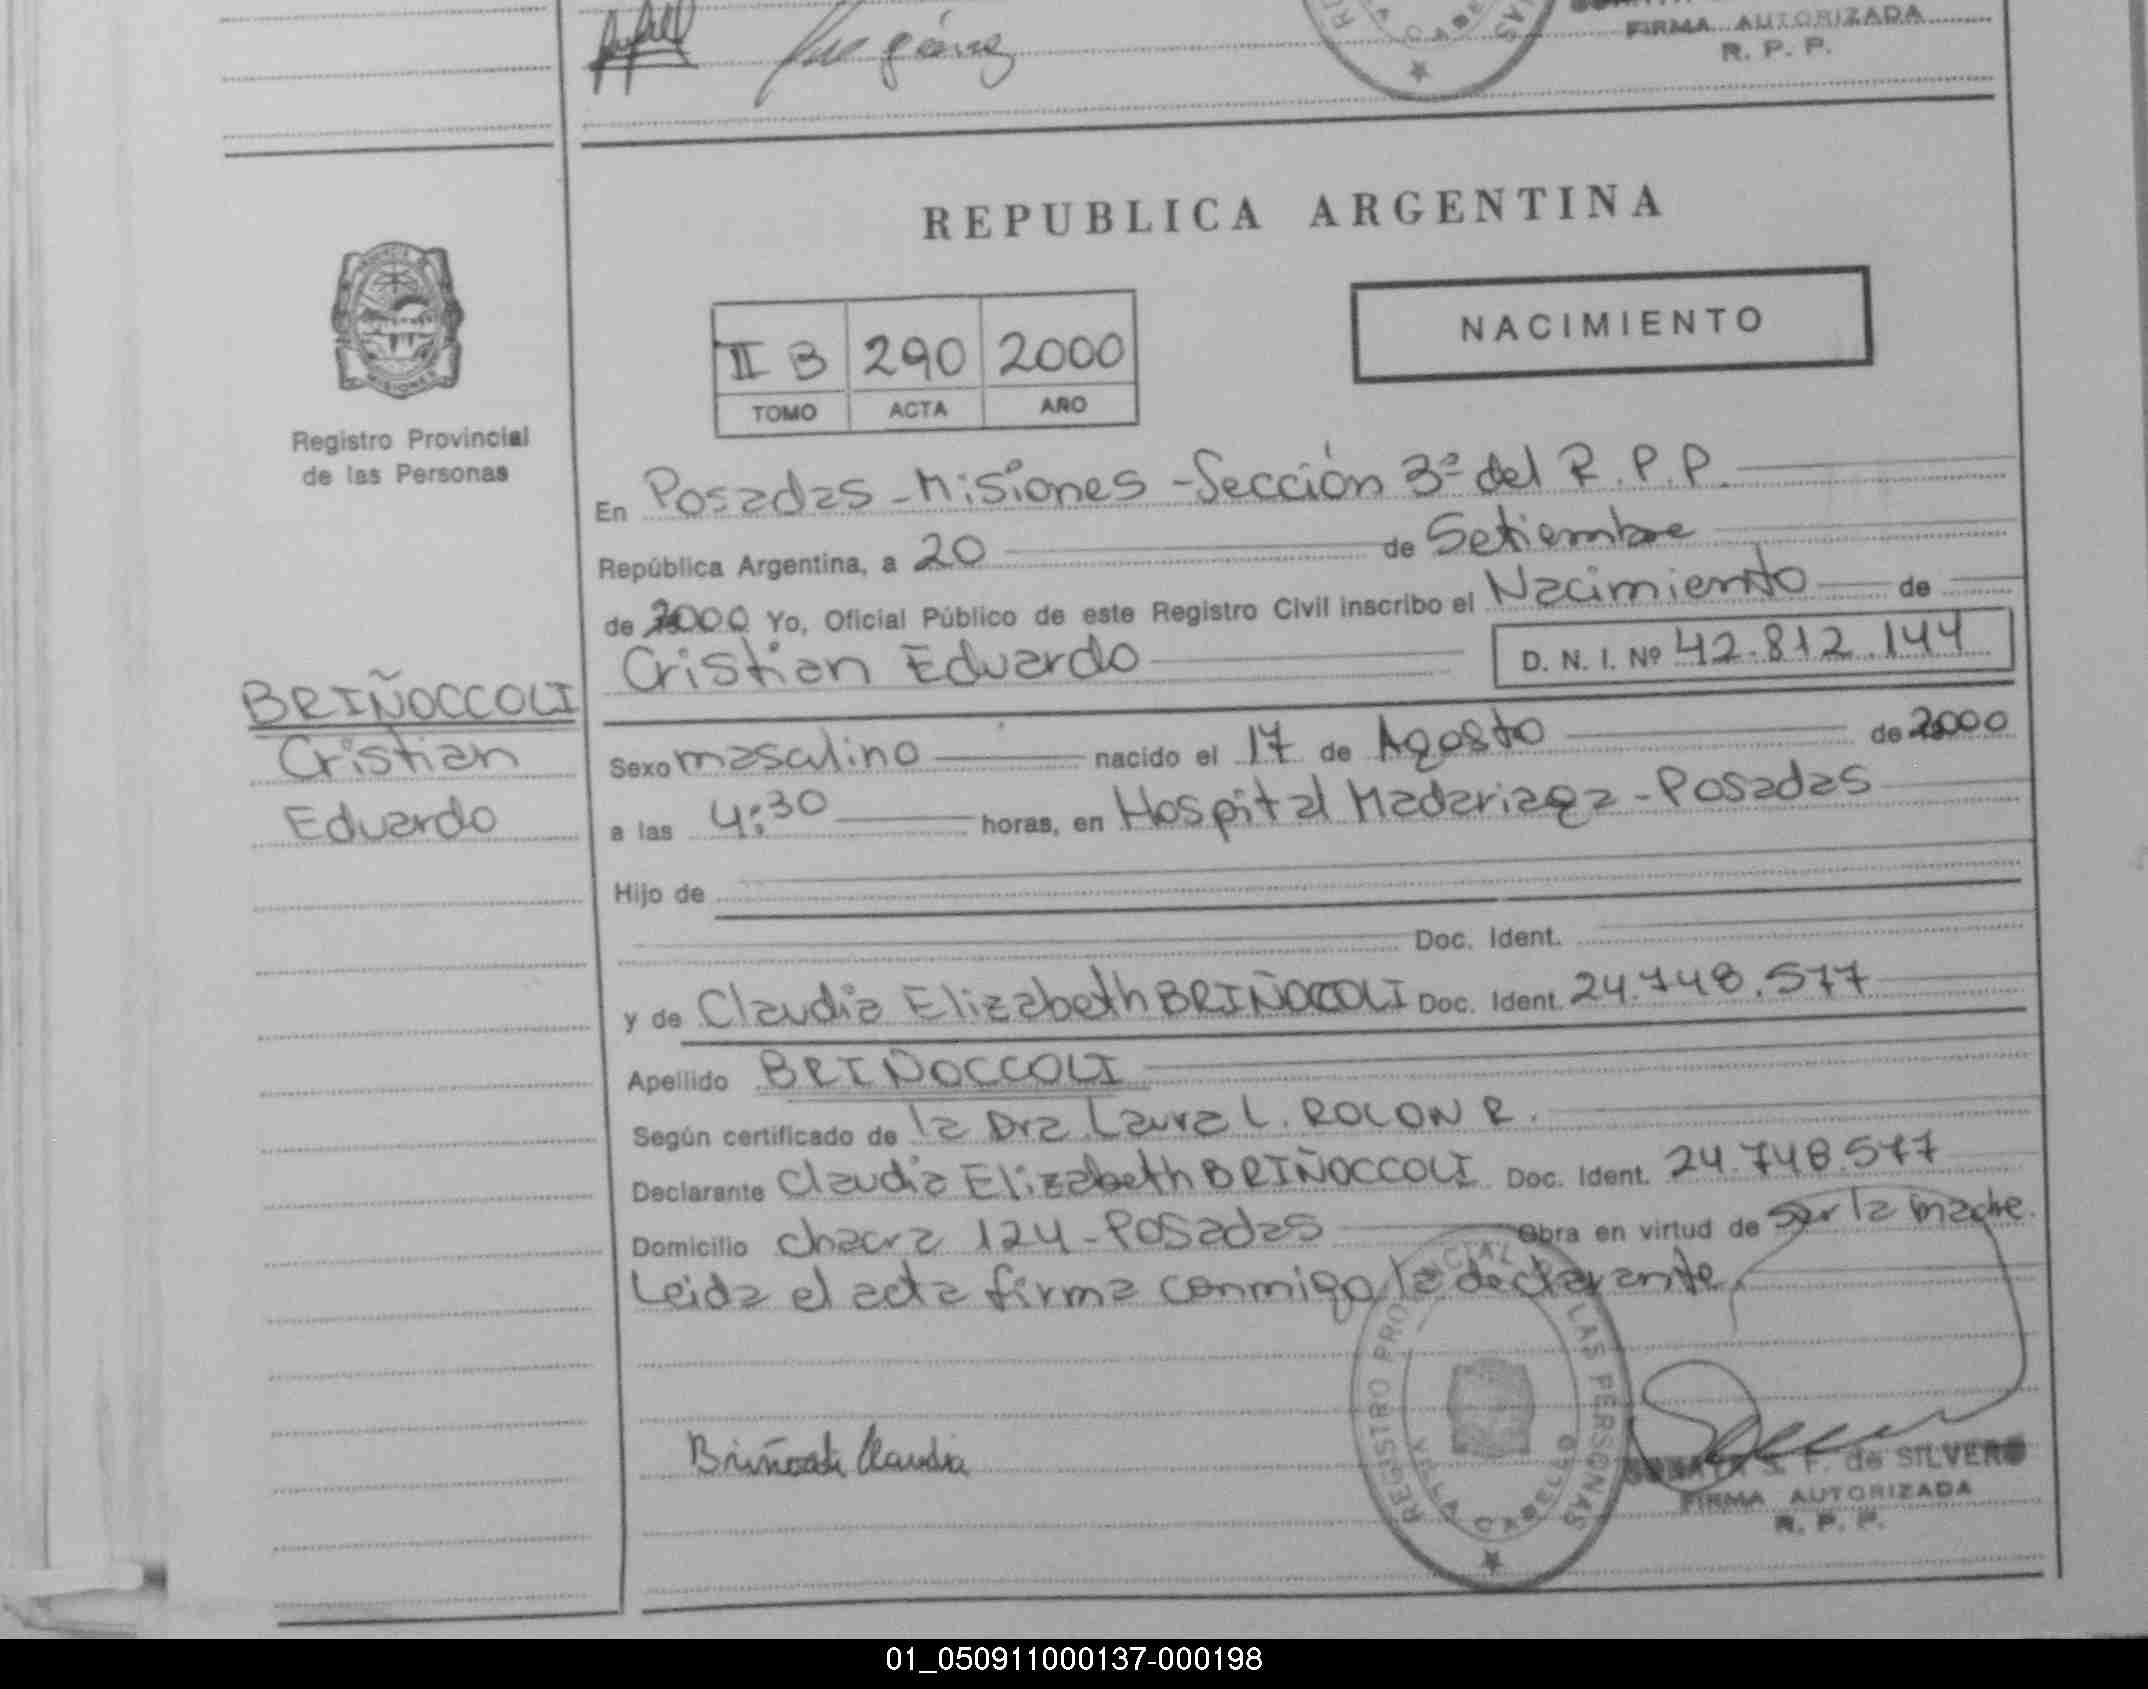 FIRMA AUTORIZADA
R. P. P.
REPUBLICA ARGENTINA
NACIMIENTO
II B 290 2000
TOMO ACTA AÑO
Registro Provincial
de las Personas
En Posadas - Misiones - Sección 3ª del R.P.P.
República Argentina, a 20 de Setiembre
de 2000 Yo, Oficial Público de este Registro Civil inscribo el Nacimiento de
Cristian Eduardo D. N. I. Nº 42.812.144
BRIÑOCCOLI
Cristian
Eduardo
Sexo masculino nacido el 17 de Agosto de 2000
a las 4:30 horas, en Hospital Madariaga - Posadas
Hijo de
Doc. Ident.
y de Claudia Elizabeth BRIÑOCCOLI Doc. Ident. 24.748.577
Apellido BRIÑOCCOLI
Según certificado de la Dra Laura L. ROLON R.
Declarante Claudia Elizabeth BRIÑOCCOLI Doc. Ident. 24.748.577
Domicilio chacra 124 - Posadas Obra en virtud de ser la madre.
Leida el acta firma conmigo la declarante.
REGISTRO PROVINCIAL LAS PERSONAS
VILLA CABELLO
Briñoccoli Claudia
F. de SILVERO
FIRMA AUTORIZADA
R. P. P.
01_050911000137-000198